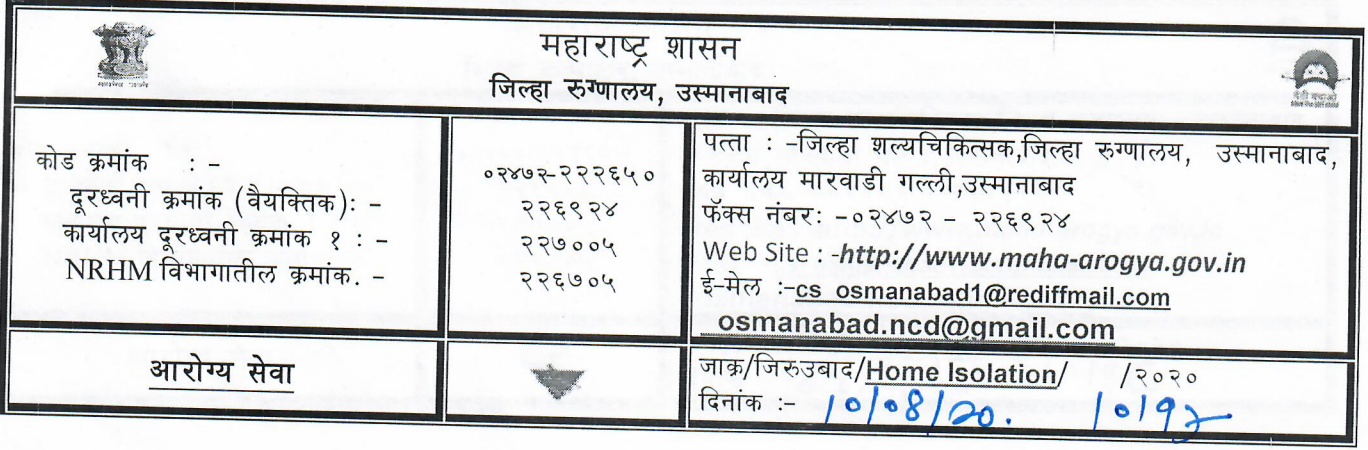 महाराष्ट्र शासन
जिल्हा रुग्णालय, उस्मानाबाद
कोड क्रमांक : -
दूरध्वनी क्रमांक (वैयक्तिक): -
कार्यालय दूरध्वनी क्रमांक १ : -
NRHM विभागातील क्रमांक. -
०२४७२-२२२६५०
२२६९२४
२२७००५
२२६७०५
पत्ता : -जिल्हा शल्यचिकित्सक,जिल्हा रुग्णालय, उस्मानाबाद,
कार्यालय मारवाडी गल्ली,उस्मानाबाद
फॅक्स नंबर: -०२४७२ - २२६९२४
Web Site : -http://www.maha-arogya.gov.in
ई-मेल :-cs_osmanabad1@rediffmail.com
osmanabad.ncd@gmail.com
आरोग्य सेवा
जाक्र/जिरुउबाद/Home Isolation/ /२०२०
दिनांक :- 10/08/20.